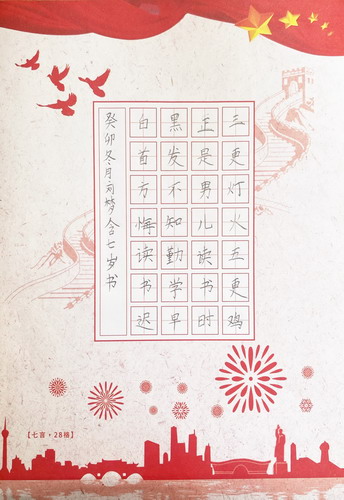 三更灯火五更鸡
正是男儿读书时
黑发不知勤学早
白首方悔读书迟
癸卯冬月梦含七岁书
【七言·28格】